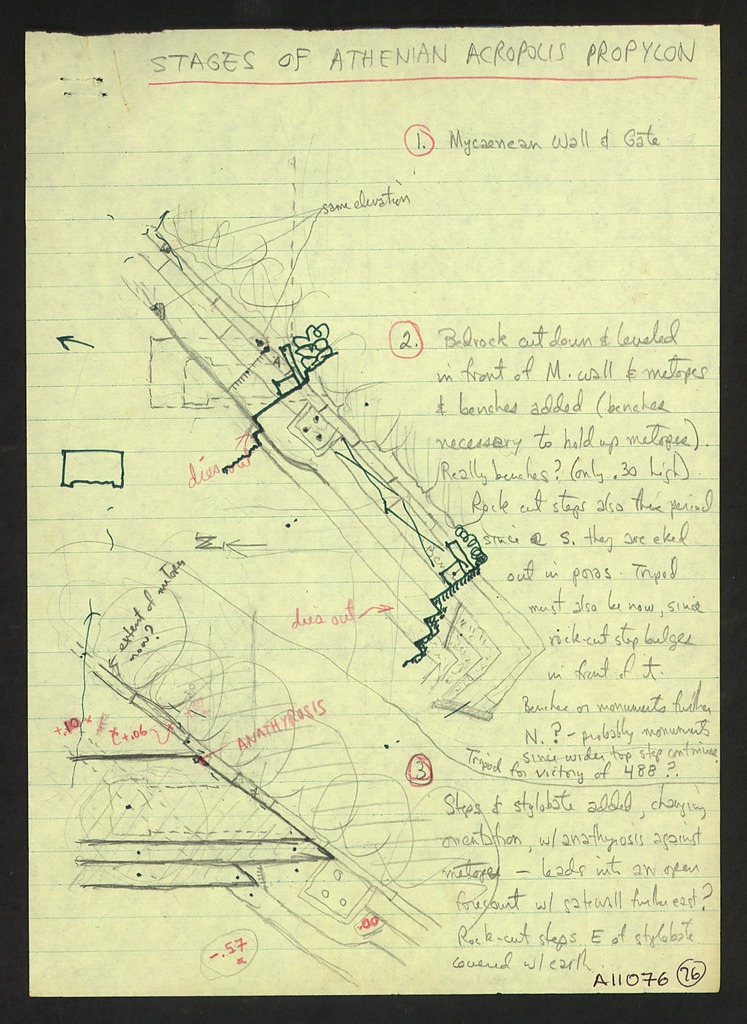 STAGES OF ATHENIAN ACROPOLIS PROPYLON
1. Mycaenean Wall & Gate
same elevation
2. Bedrock cut down & leveled
in front of M. wall & metopes
& benches added (benches
necessary to hold up metopes).
Really benches? (only .30 high).
Rock cut steps also this period
since @ S. they are eked
out in poros. Tripod
must also be now, since
rock-cut step bulges
in front of it.
Benches or monuments further
N. ? - probably monuments
since wider top step continues
Tripod for victory of 488 ?
A
dies out
N
dies out
extent of metopes
now?
+.10
+.06
ANATHYROSIS
3
Steps & stylobate added, changing
orientation, w/ anathyrosis against
metopes - leads into an open
forecourt w/ gatewall further east?
Rock-cut steps E of stylobate
covered w/ earth.
.00
-.57
A11076 26